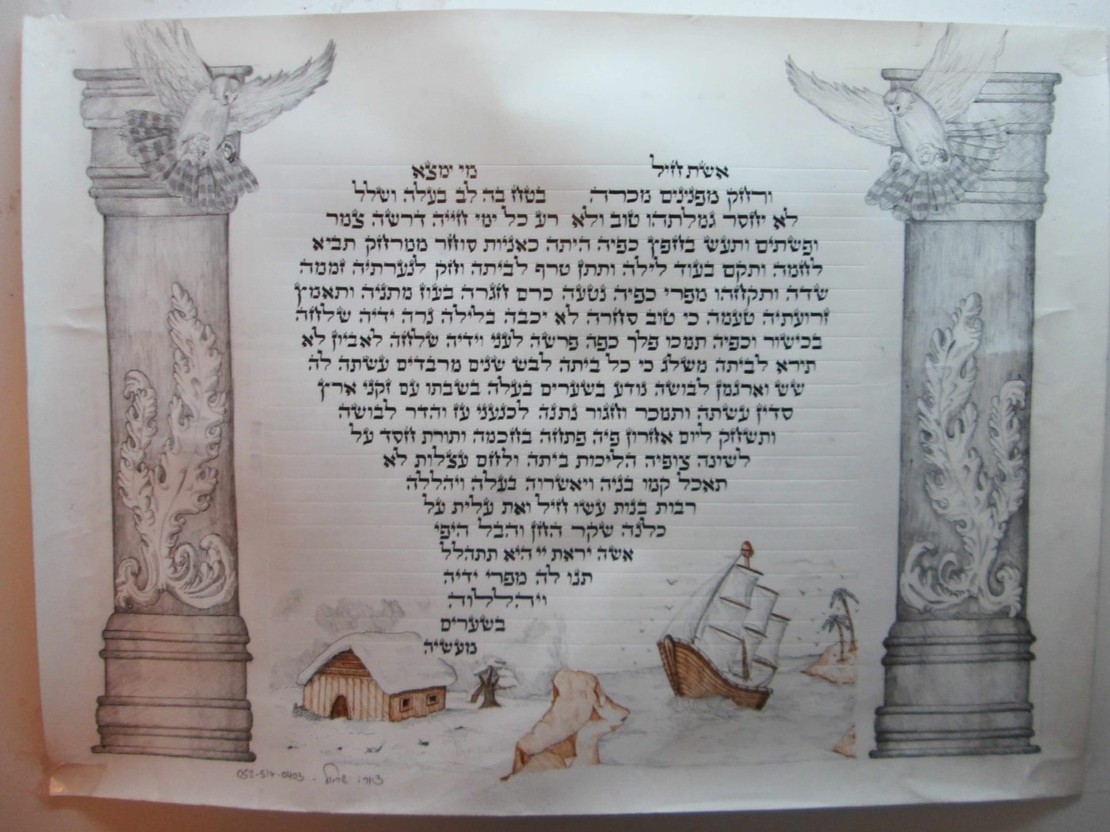 אשת חיל מי ימצא
ורחק מפנינים מכרה בטח בה לב בעלה ושלל
לא יחסר גמלתהו טוב ולא רע כל ימי חייה דרשה צמר
ופשתים ותעש בחפץ כפיה היתה כאניות סוחר ממרחק תביא
לחמה ותקם בעוד לילה ותתן טרף לביתה וחק לנערתיה זממה
שדה ותקחהו מפרי כפיה נטעה כרם חגרה בעוז מתניה ותאמץ
זרועתיה טעמה כי טוב סחרה לא יכבה בלילה נרה ידיה שלחה
בכישור וכפיה תמכו פלך כפה פרשה לעני וידיה שלחה לאביון לא
תירא לביתה משלג כי כל ביתה לבש שנים מרבדים עשתה לה
שש וארגמן לבושה נודע בשערים בעלה בשבתו עם זקני ארץ
סדין עשתה ותמכר וחגור נתנה לכנעני עז והדר לבושה
ותשחק ליום אחרון פיה פתחה בחכמה ותורת חסד על
לשונה צופיה הליכות ביתה ולחם עצלות לא
תאכל קמו בניה ויאשרוה בעלה ויהללה
רבות בנות עשו חיל ואת עלית על
כלנה שקר החן והבל היפי
אשה יראת יי היא תתהלל
תנו לה מפרי ידיה
ויהללוה
בשערים
מעשיה
052-517-0403